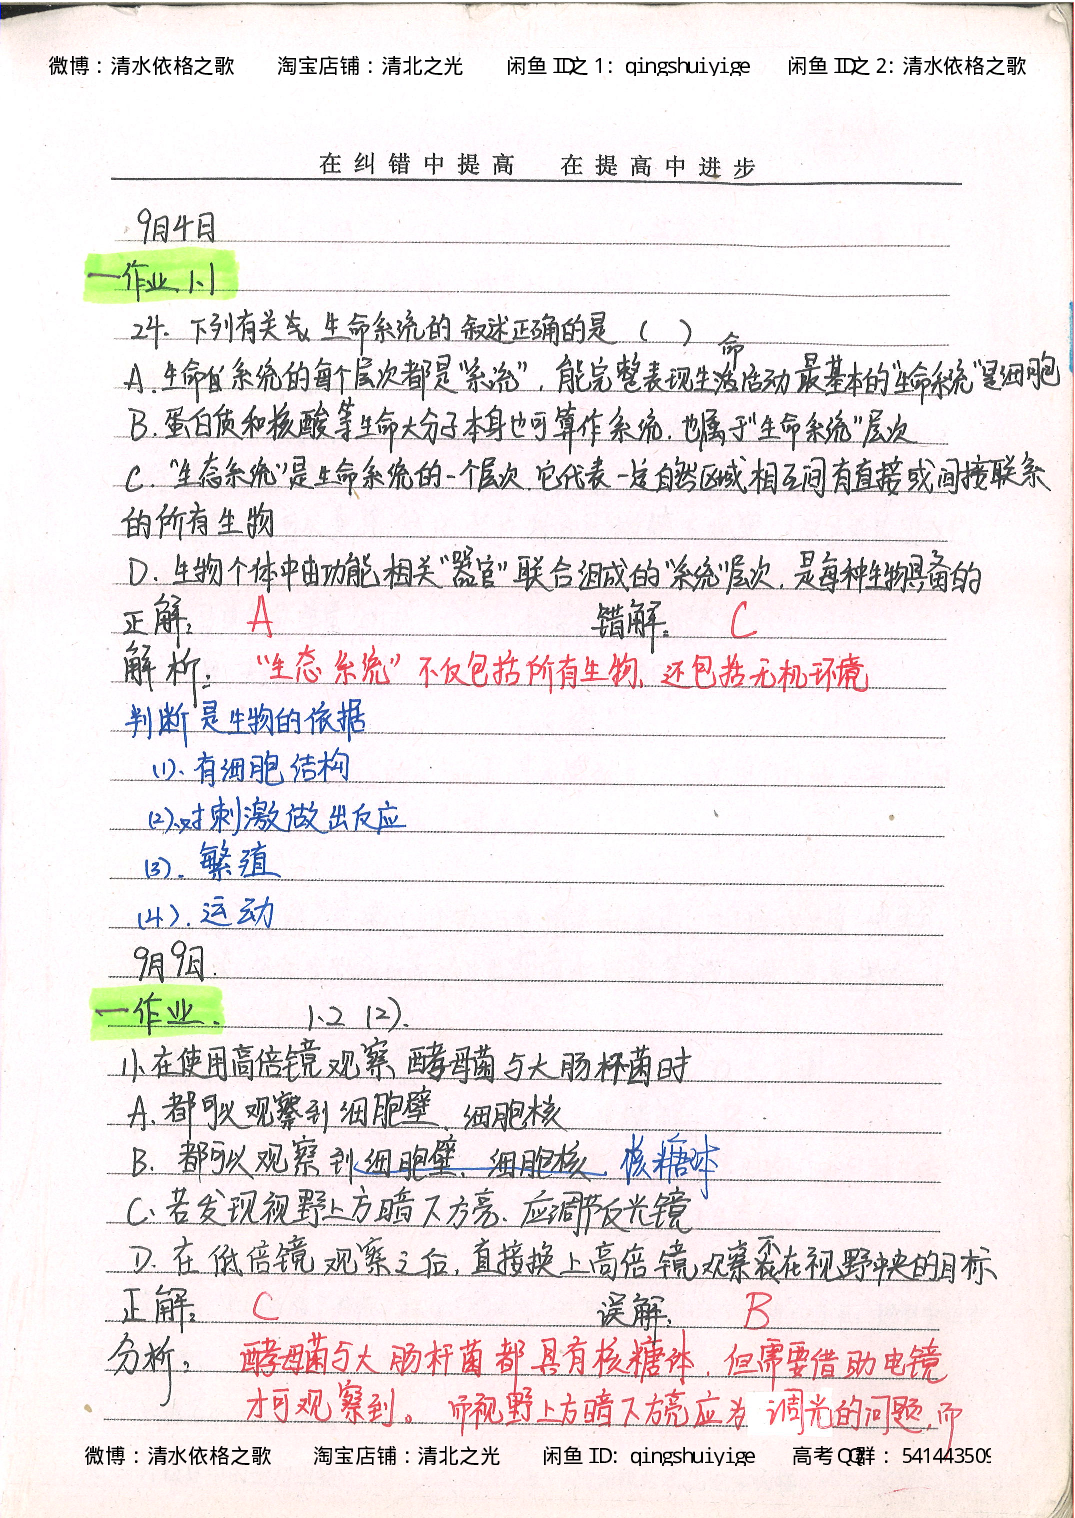 微博：清水依格之歌 淘宝店铺：清北之光 闲鱼 ID之 1：qingshuiyige 闲鱼 ID之 2：清水依格之歌
在纠错中提高 在提高中进步
9月4日
一作业 1、1
24. 下列有关 生命系统的 叙述正确的是（ ）
A. 生命 系统的每个层次都是“系统”，能完整表现生命活动 最基本的“生命系统”是细胞
B. 蛋白质和核酸等生命大分子本身也可算作系统. 也属于“生命系统”层次
C. “生态系统”是生命系统的一个层次. 它代表一定自然区域相互间有直接或间接联系
的所有生物
D. 生物个体中由功能相关“器官”联合组成的“系统”层次，是每种生物具备的
正解： A 错解： C
解析： “生态系统”不仅包括所有生物，还包括无机环境
判断是生物的依据
(1)、有细胞结构
(2)、对刺激做出反应
(3). 繁殖
(4). 运动
9月9日.
一作业. 1、2 (2).
11、在使用高倍镜观察 酵母菌与大肠杆菌时
A. 都可以观察到细胞壁、细胞核
B. 都可以观察到细胞壁、细胞核 核糖体
C、若发现视野上方暗下方亮、应调节反光镜
D. 在低倍镜观察之后，直接换上高倍镜观察不在视野中央的目标
正解： C 误解： B
分析： 酵母菌与大肠杆菌都具有核糖体，但需要借助电镜
才可观察到。而视野上方暗下方亮应为 调光的问题，而
微博：清水依格之歌 淘宝店铺：清北之光 闲鱼 ID：qingshuiyige 高考QQ群：541443509